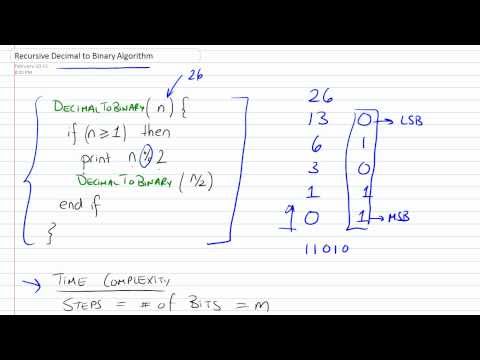 Recursive Decimal to Binary Algorithm
8:00 PM
26
DECIMALTOBINARY(n) {
if (n≥1) then
print n%2
DECIMALTOBINARY(n/2)
end if
}
26
13 0 → LSB
6 1
3 0
1 1
0 1 → MSB
11010
→ TIME COMPLEXITY
STEPS = # of BITS = m